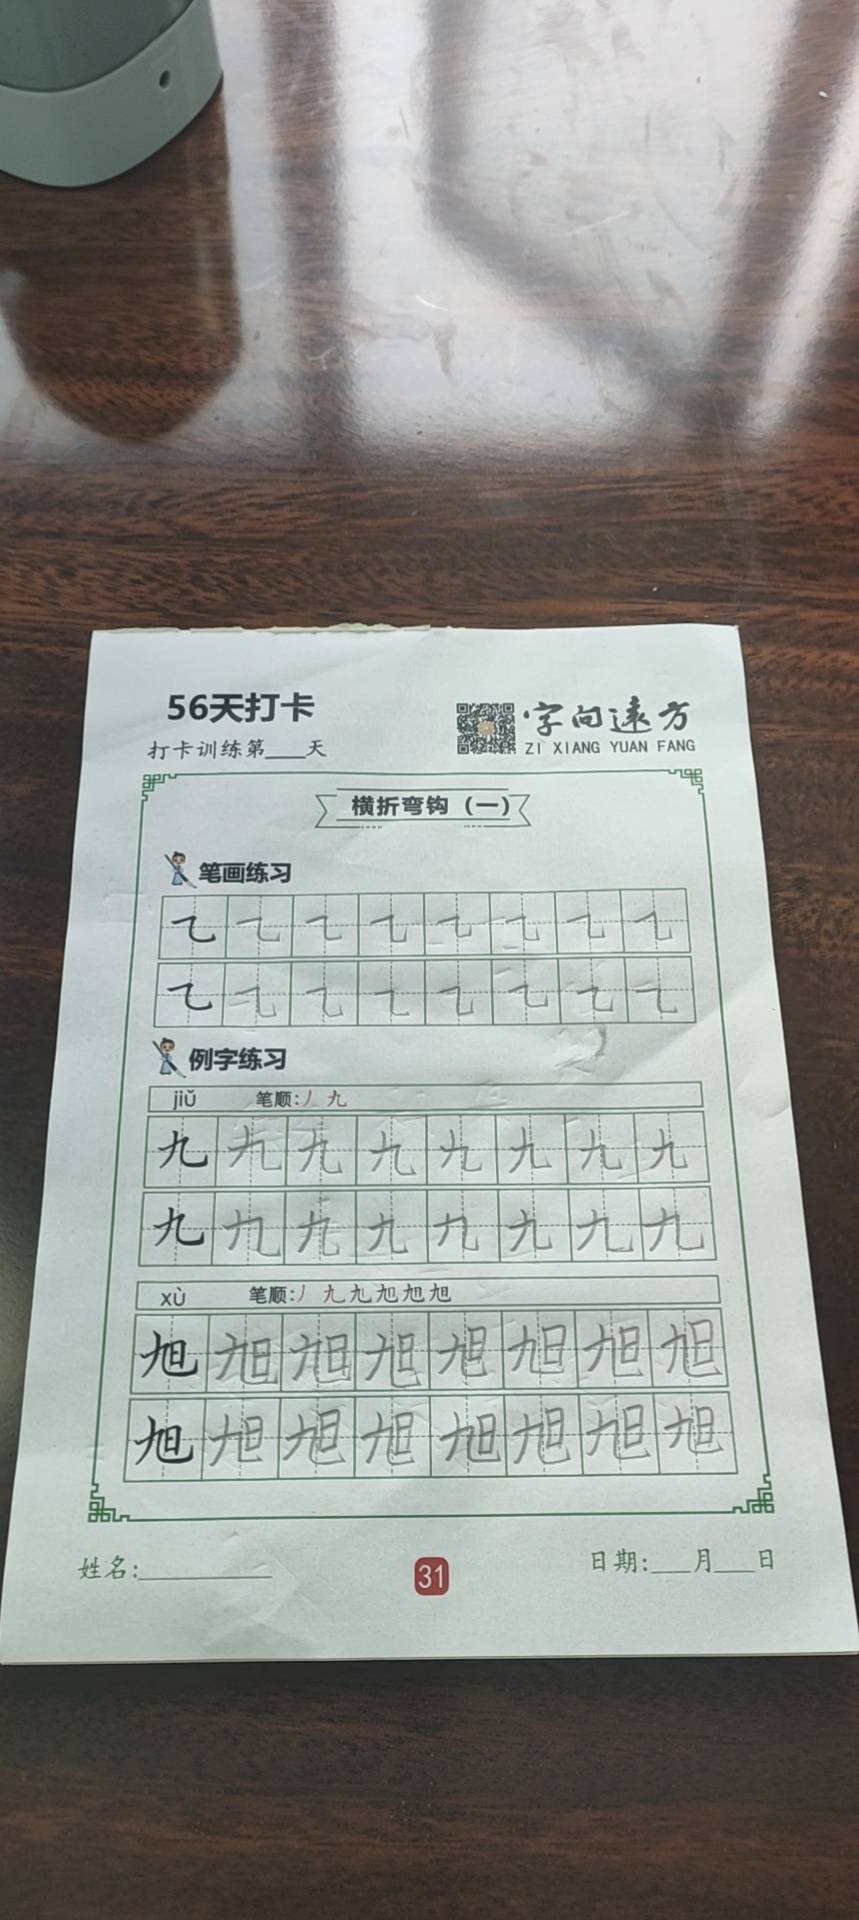 56天打卡
字向远方
打卡训练第___天
ZI XIANG YUAN FANG
横折弯钩（一）
笔画练习
㇈ ㇈ ㇈ ㇈ ㇈ ㇈ ㇈ ㇈
㇈ ㇈ ㇈ ㇈ ㇈ ㇈ ㇈ ㇈
例字练习
jiǔ 笔顺:丿 九
九 九 九 九 九 九 九 九
九 九 九 九 九 九 九 九
xù 笔顺:丿 九 九 旭 旭 旭
旭 旭 旭 旭 旭 旭 旭 旭
旭 旭 旭 旭 旭 旭 旭 旭
姓名:__________ 31 日期:___月___日